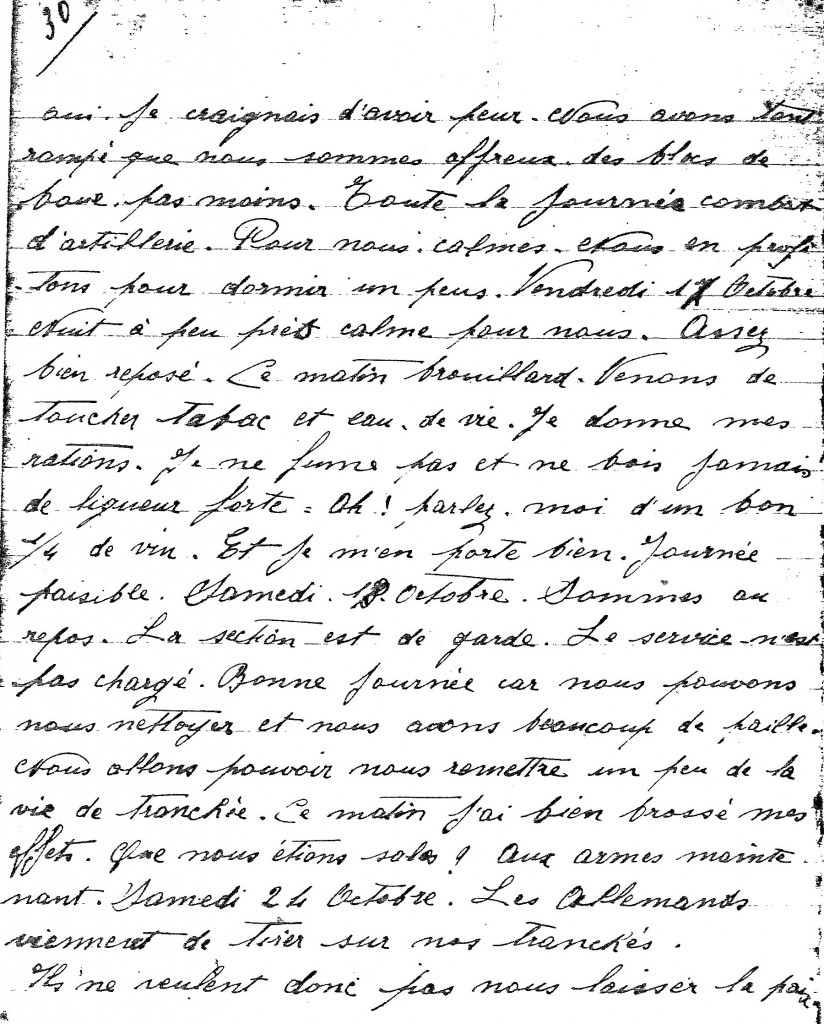 30/
oui. Je craignais d'avoir peur. Nous avons tant
rampé que nous sommes affreux. des blocs de
boue. pas moins. Toute la journée combat
d'artillerie. Pour nous. calmes. Nous en profi
tons pour dormir un peus. Vendredi 17 Octobre
Nuit à peu près calme pour nous. Assez
bien reposé. Ce matin brouillard. Venons de
toucher tabac et eau. de vie. Je donne mes
rations. Je ne fume pas et ne bois jamais
de liqueur forte = Oh! parlez. moi d'un bon
1/4 de vin. Et je m'en porte bien. Journée
paisible. Samedi. 18. Octobre. Sommes au
repos. La section est de garde. Le service n'est
pas chargé. Bonne journée car nous pouvons
nous nettoyer et nous avons beaucoup de paille.
Nous allons pouvoir nous remettre un peu de la
vie de tranchée. Ce matin j'ai bien brossé mes
effets. Que nous étions sales! Aux armes mainte
nant. Samedi 24 Octobre. Les Allemands
viennent de tirer sur nos tranckés.
Ils ne veulent donc pas nous laisser la paix.